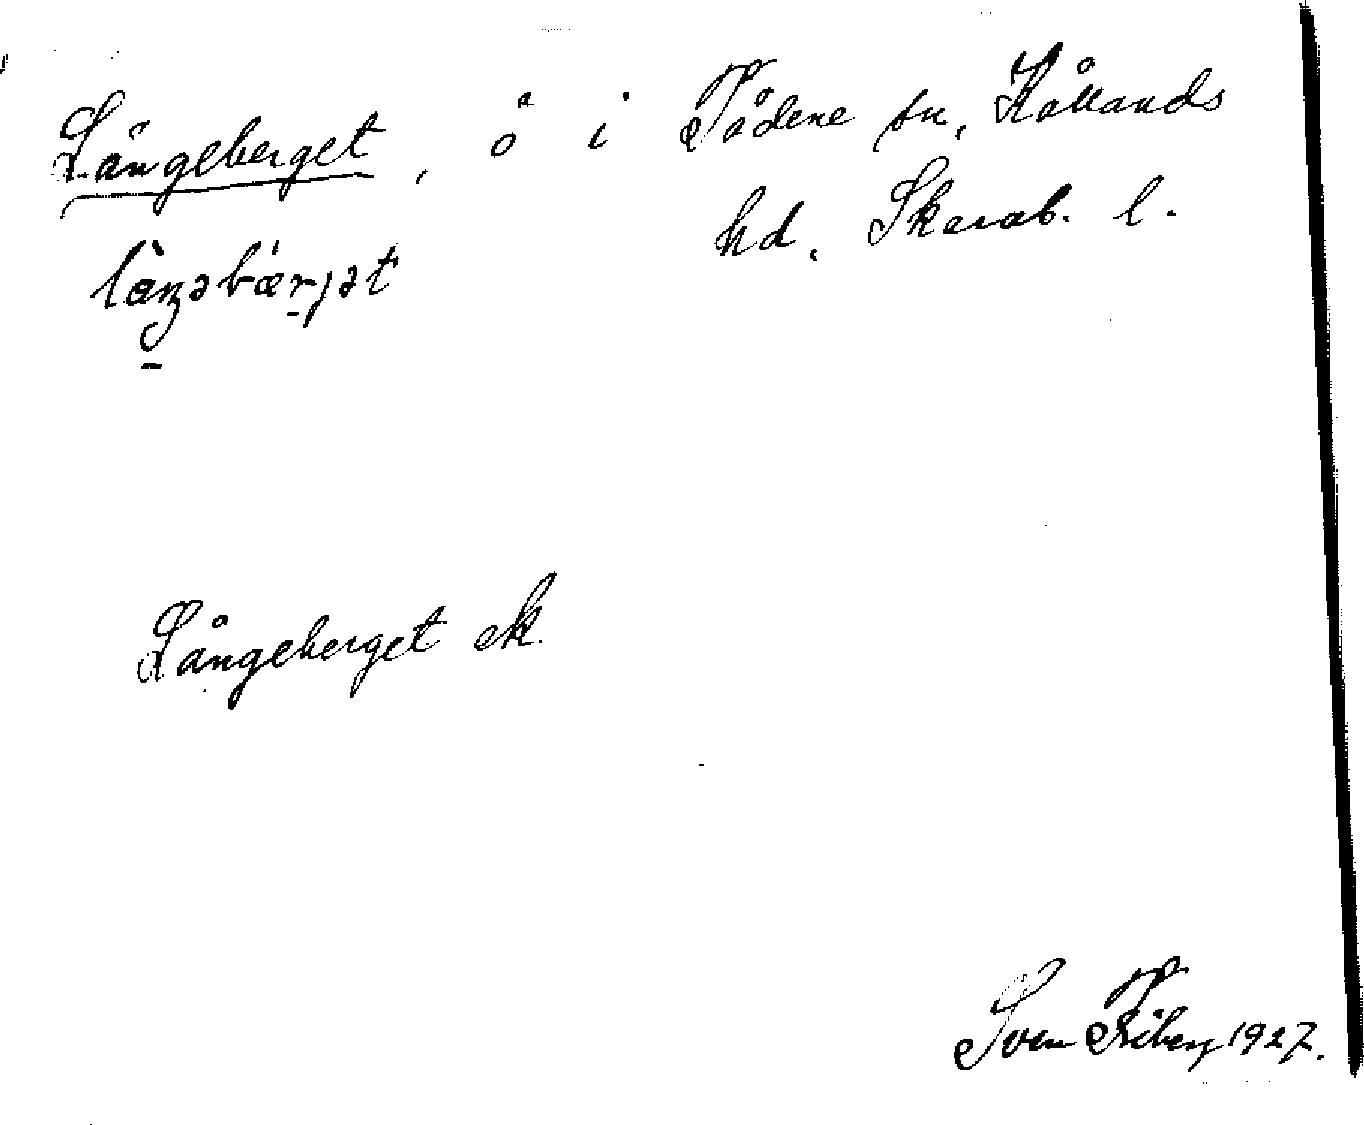 Långeberget, ö i Tådene sn, Kållands
hd. Skarab. l.
Långeberget ek.
Sven Friberg 1927.